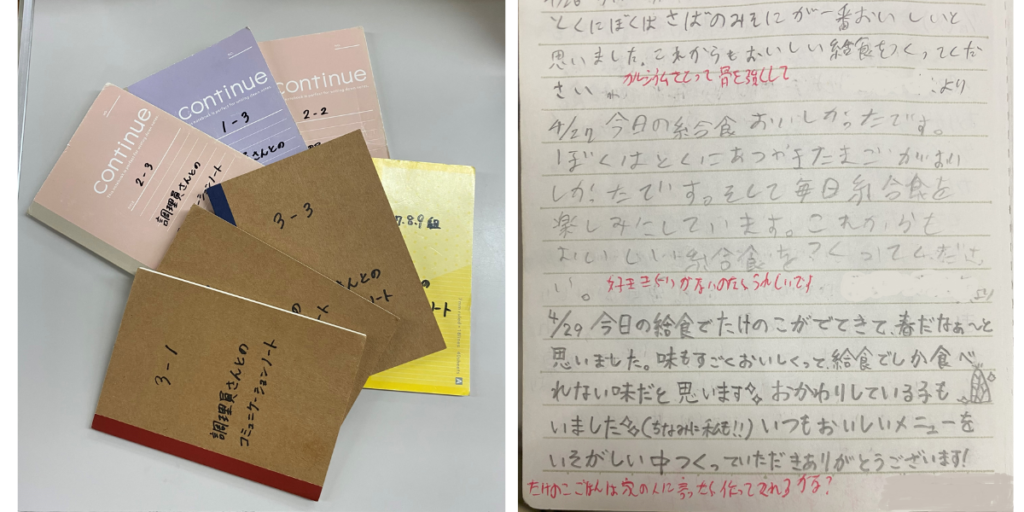 continue
2-3
調理員さんとの
continue
1-3
continue
2-2
3-3
7.8.9組
3-1
調理員さんとの
コミュニケーションノート
とくにぼくはさばのみそにが一番おいしいと
思いました。これからもおいしい給食をつくってくだ
さい。
カルシウムをとって骨を強くして
より
4/27 今日の給食おいしかったです。
ぼくはとくにあつやきたまごがおい
しかったです。そして毎日給食を
楽しみにしています。これからも
おいしい給食をつくってくださ
い。
好ききらいがないのならうれしいです
より
4/29 今日の給食でたけのこがでてきて、春だなぁ〜と
思いました。味もすごくおいしくって、給食でしか食べ
れない味だと思います。おかわりしている子も
いました(ちなみに私も!!)いつもおいしいメニューを
いそがしい中つくっていただきありがとうございます!
たけのこごはんは家の人に言ったら作ってくれるかな?